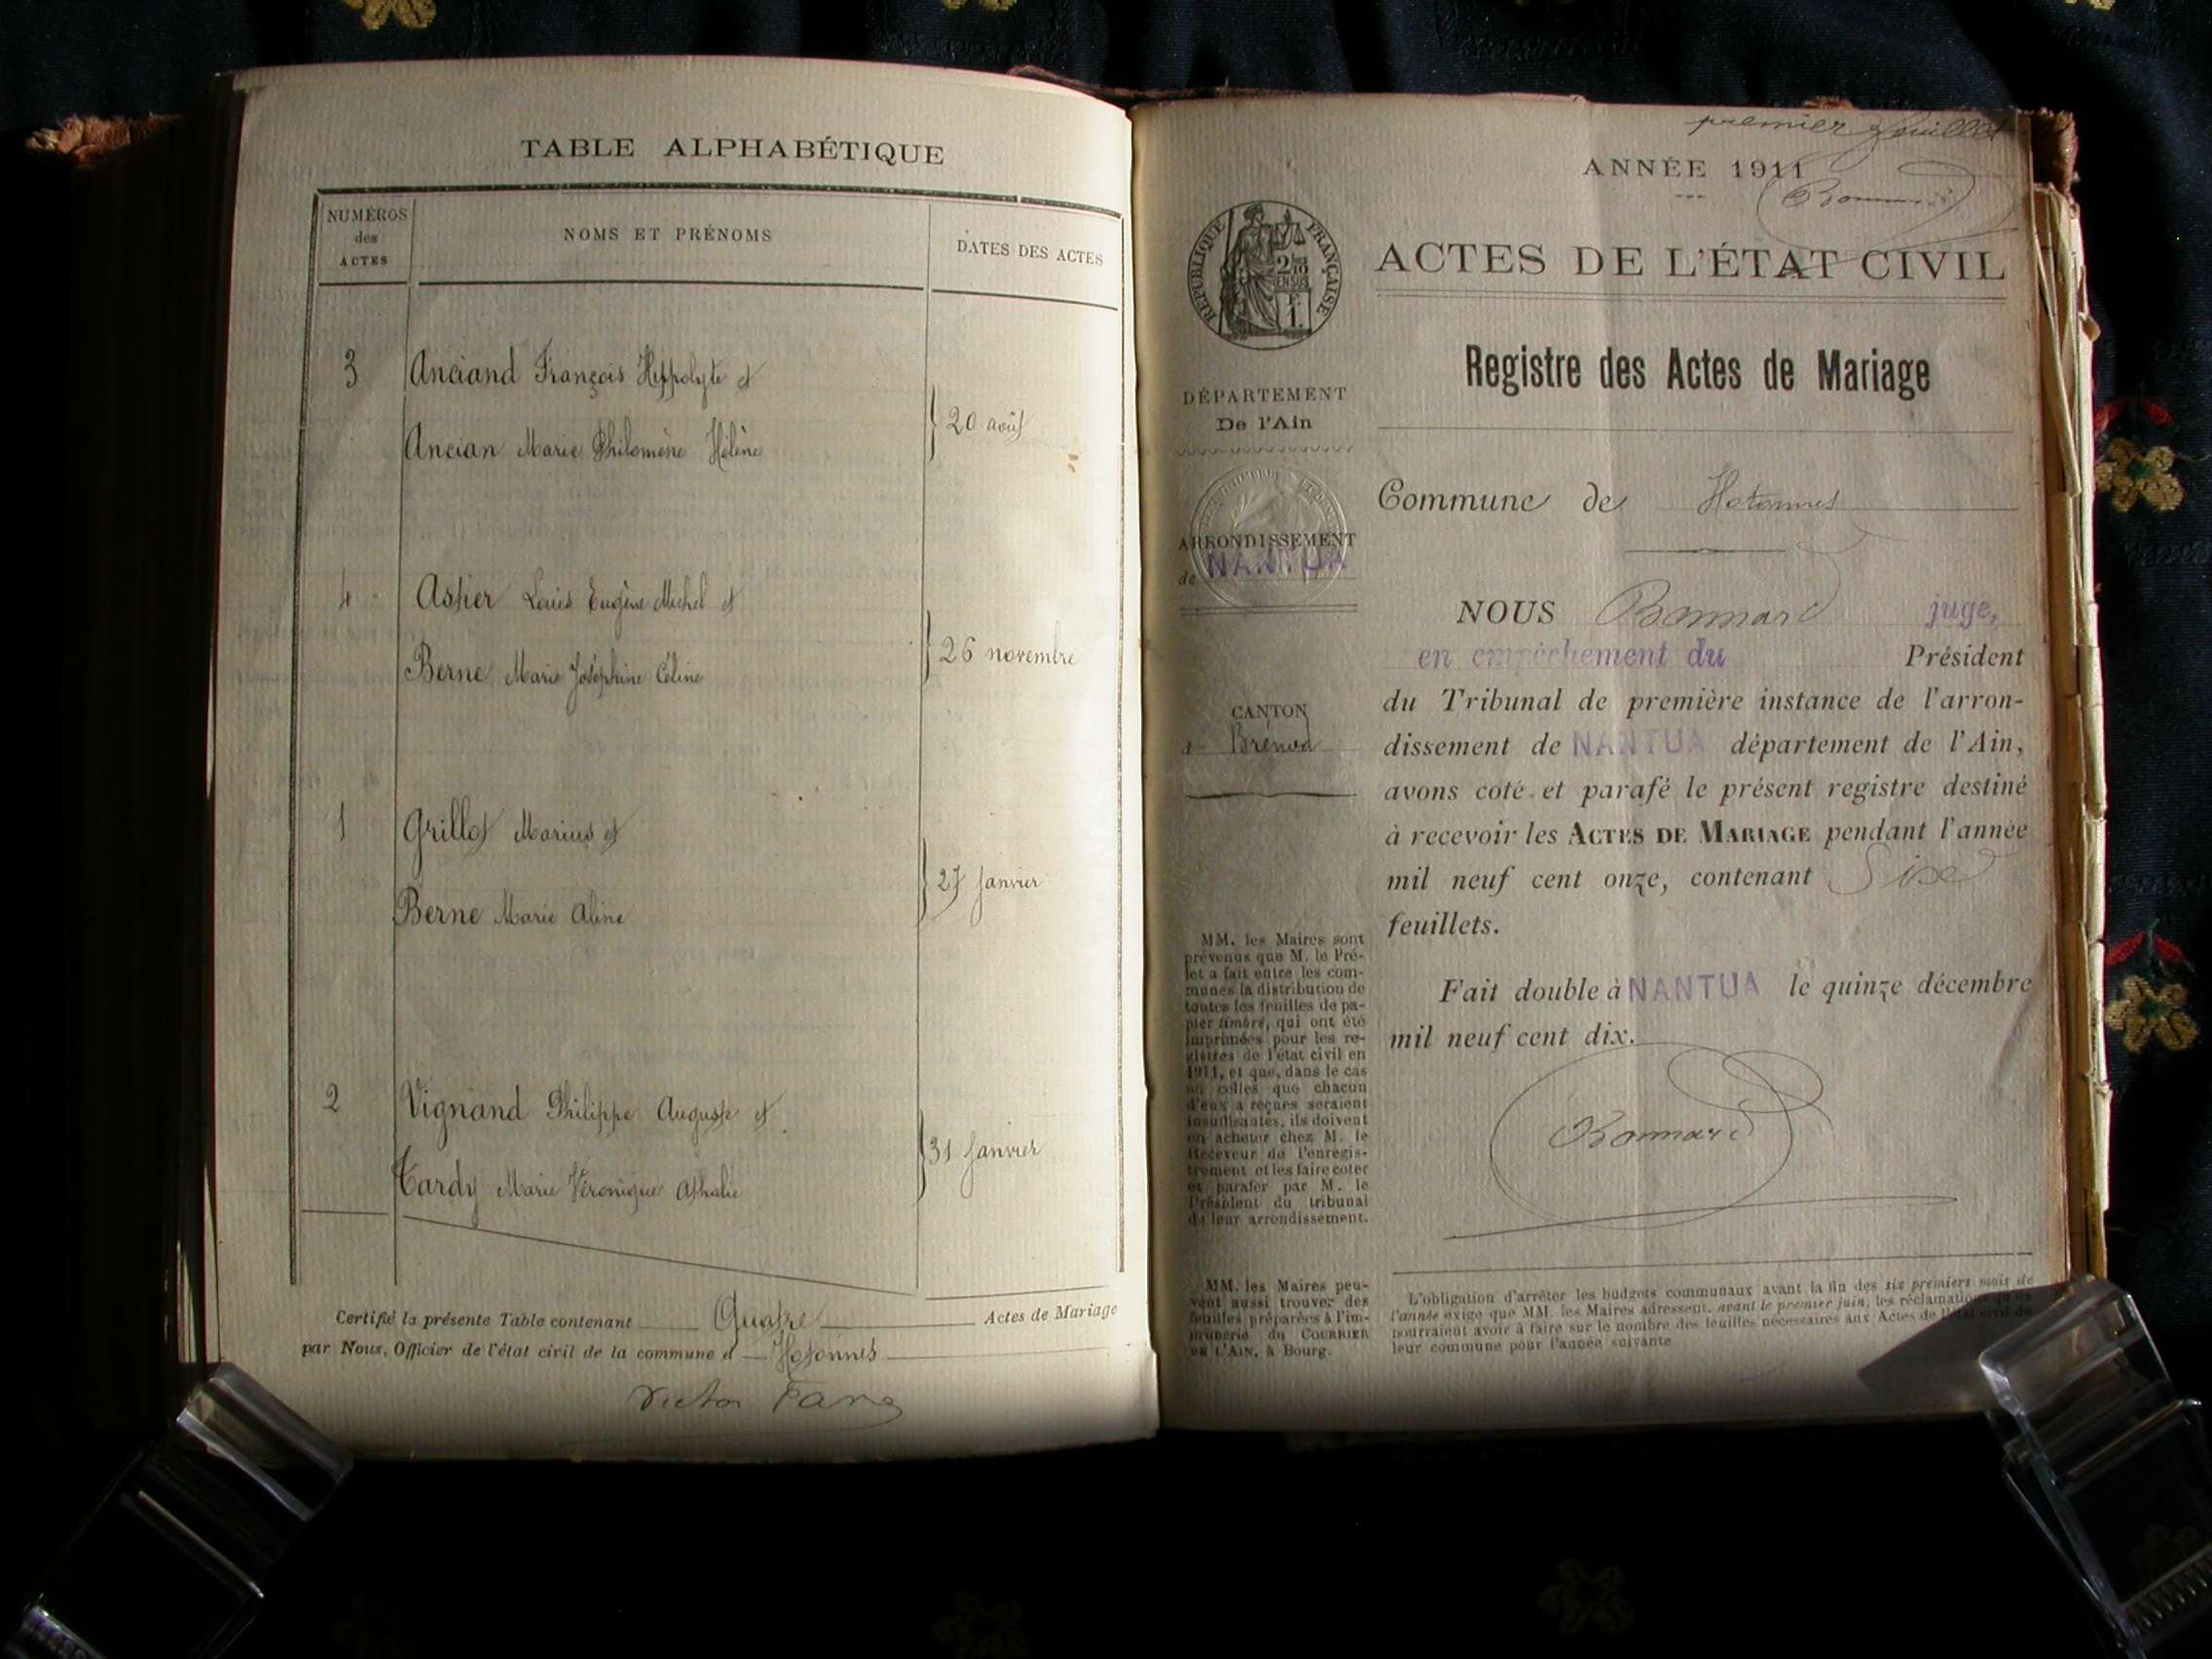 TABLE ALPHABÉTIQUE
NUMÉROS
des
ACTES
NOMS ET PRÉNOMS
DATES DES ACTES
3 Anciand François Hippolyte et
20 août
Ancian Marie Philomène Hélène
4 Astier Louis Eugène Michel et
26 novembre
Berne Marie Joséphine Céline
1 Grillot Marius et
27 Janvier
Berne Marie Aline
2 Vignand Philippe Auguste et
31 Janvier
Tardy Marie Véronique Athalie
Certifié la présente Table contenant Quatre Actes de Mariage
par Nous, Officier de l'état civil de la commune d Hotonnes
Victor
premier feuillet
ANNÉE 1911
Bonnard
RÉPUBLIQUE FRANÇAISE
2/10
EN SUS
1
ACTES DE L'ÉTAT CIVIL
Registre des Actes de Mariage
DÉPARTEMENT
De l'Ain
Commune de Hotonnes
ARRONDISSEMENT
de NANTUA
CANTON
Brénod
NOUS Bonnard juge,
en empêchement du Président
du Tribunal de première instance de l'arron-
dissement de NANTUA département de l'Ain,
avons coté et parafé le présent registre destiné
à recevoir les ACTES DE MARIAGE pendant l'année
mil neuf cent onze, contenant Six
feuillets.
Fait double à NANTUA le quinze décembre
mil neuf cent dix.
Bonnard
MM. les Maires sont
prévenus que M. le Pré-
fet a fait entre les com-
munes la distribution de
toutes les feuilles de pa-
pier timbré, qui ont été
imprimées pour les re-
gistres de l'état civil en
1911, et que, dans le cas
où celles que chacun
d'eux a reçues seraient
insuffisantes, ils doivent
en acheter chez M. le
Receveur de l'enregis-
trement et les faire coter
et parafer par M. le
Président du tribunal
de leur arrondissement.
MM. les Maires peu-
vent aussi trouver des
feuilles préparées à l'im-
primerie du COURRIER
DE L'AIN, à Bourg.
L'obligation d'arrêter les budgets communaux avant la fin des six premiers mois de
l'année exige que MM. les Maires adressent, avant le premier juin, les réclamations qu'ils
pourraient avoir à faire sur le nombre des feuilles nécessaires aux Actes de l'état civil de
leur commune pour l'année suivante